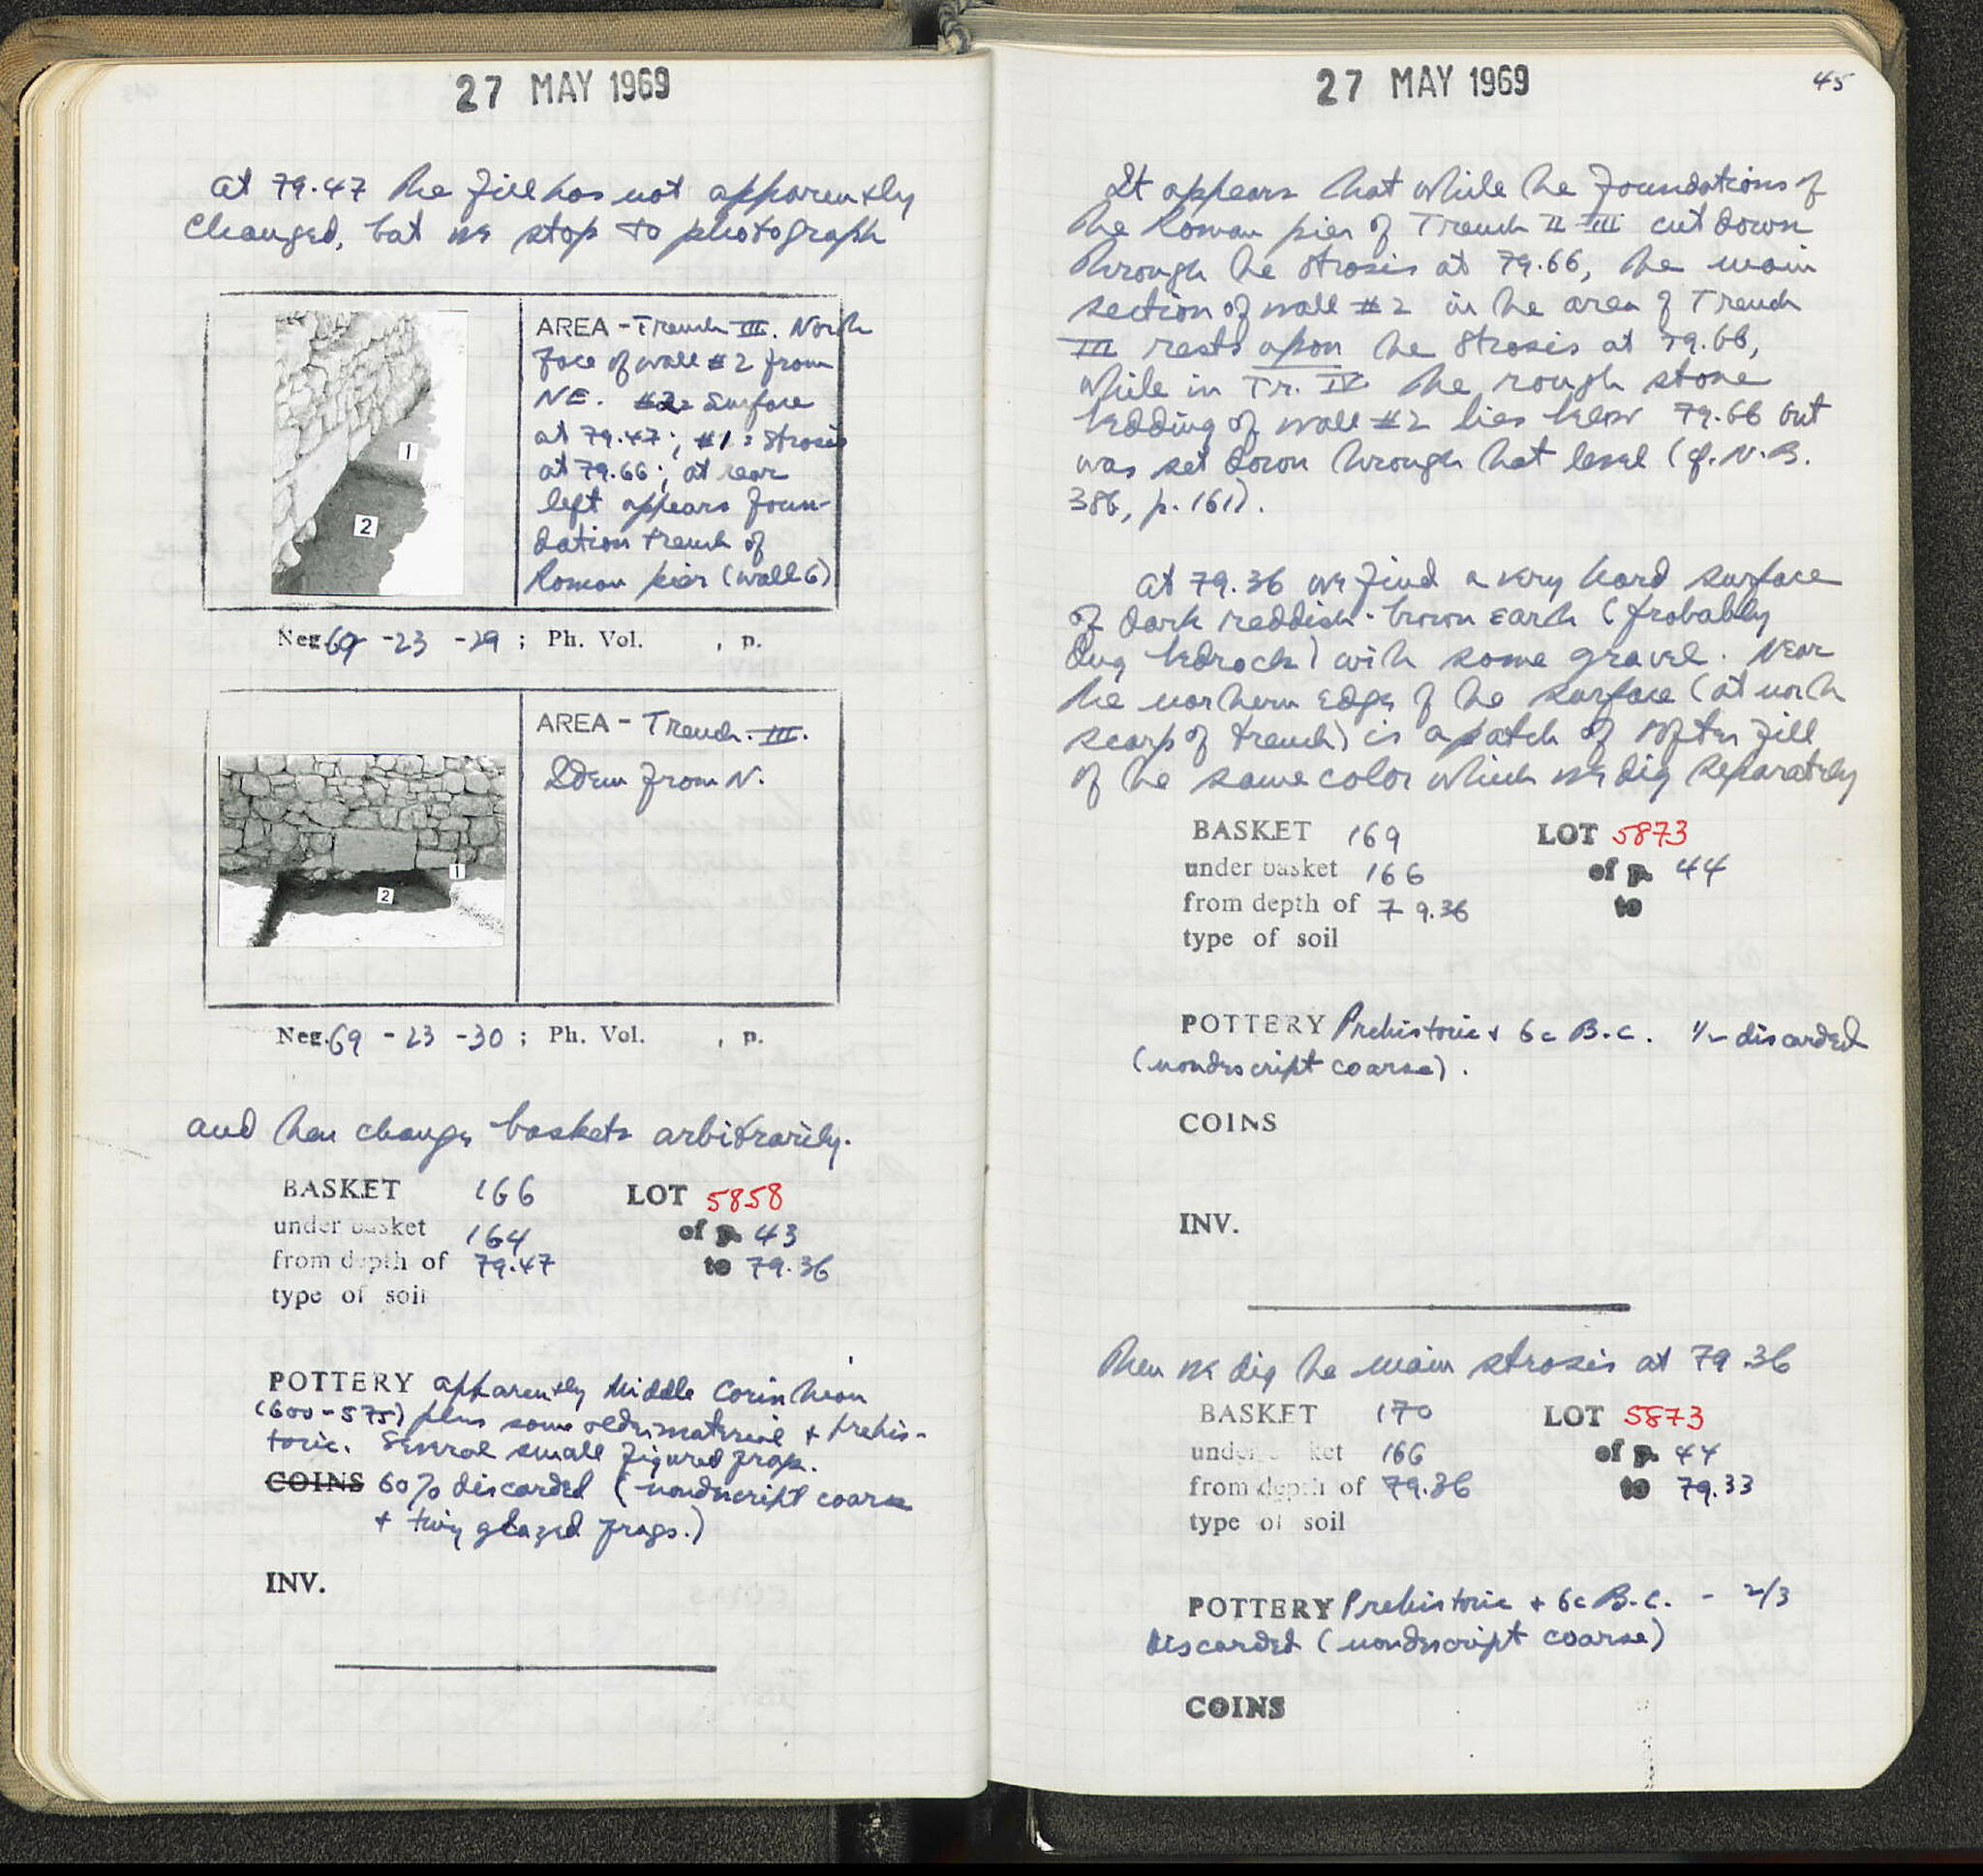 27 MAY 1969
At 79.47 the fill has not apparently
changed, but we stop to photograph
AREA - Trench III. North
face of wall #2 from
NE. #2 = Surface
at 79.47; #1 = Strosis
at 79.66; at rear
left appears foun-
dation trench of
Roman pier (wall 6)
1
2
Neg. 69 - 23 - 29 ; Ph. Vol. , p.
AREA - Trench III.
Idem from N.
1
2
Neg. 69 - 23 - 30 ; Ph. Vol. , p.
and then change baskets arbitrarily.
BASKET 166 LOT 5858
under basket 164 of p. 43
from depth of 79.47 to 79.36
type of soil
POTTERY apparently Middle Corinthian
(600-575) plus some older material + prehis-
toric. Several small figured frags.
COINS 60% discarded (nondescript coarse
+ tiny glazed frags.)
INV.
27 MAY 1969
45
It appears that while the foundations of
the Roman pier of Trench II-III cut down
through the strosis at 79.66, the main
section of wall #2 in the area of Trench
III rests upon the strosis at 79.66,
while in Tr. IV the rough stone
bedding of wall #2 lies below 79.66 but
was set down through that level (cf. N.B.
386, p. 161).
At 79.36 we find a very hard surface
of dark reddish-brown earth (probably
dug bedrock) with some gravel. Near
the northern edge of the surface (at north
scarp of trench) is a patch of softer fill
of the same color which we dig separately
BASKET 169 LOT 5873
under basket 166 of p. 44
from depth of 79.36 to
type of soil
POTTERY Prehistoric + 6c B.C. 1/2 discarded
(nondescript coarse).
COINS
INV.
Then we dig the main strosis at 79.36
BASKET 170 LOT 5873
under basket 166 of p. 44
from depth of 79.36 to 79.33
type of soil
POTTERY Prehistoric + 6c B.C. - 2/3
discarded (nondescript coarse)
COINS